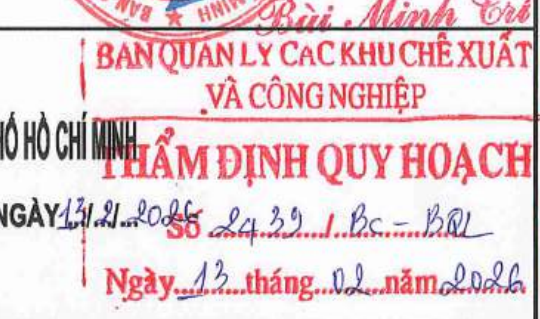 BAN MINH
Bùi Minh Trí
BAN QUẢN LÝ CÁC KHU CHẾ XUẤT
VÀ CÔNG NGHIỆP
HỐ HỒ CHÍ MINH
THẨM ĐỊNH QUY HOẠCH
NGÀY 13/2/2026
Số 2439 / BC - BQL
Ngày 13 tháng 02 năm 2026